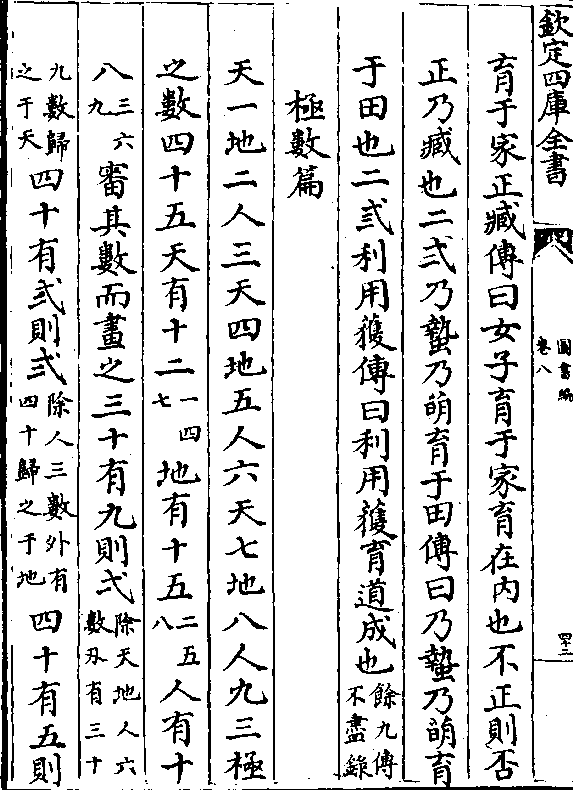 欽定四庫全書
圖書編
卷八
育于家正臧傳曰女子育于家育在内也不正則否
正乃臧也二弍乃蟄乃萌育于田傳曰乃蟄乃萌育
于田也二弍利用獲傳曰利用獲育道成也餘九傳不盡錄
極數篇
天一地二人三天四地五人六天七地八人九三極
之數四十五天有十二一四七地有十五二五八人有十
八三六九審其數而畫之三十有九則弌除天地人六數外有三十
九數歸之于天四十有弍則弍除人三數外有四十歸之于地四十有五則